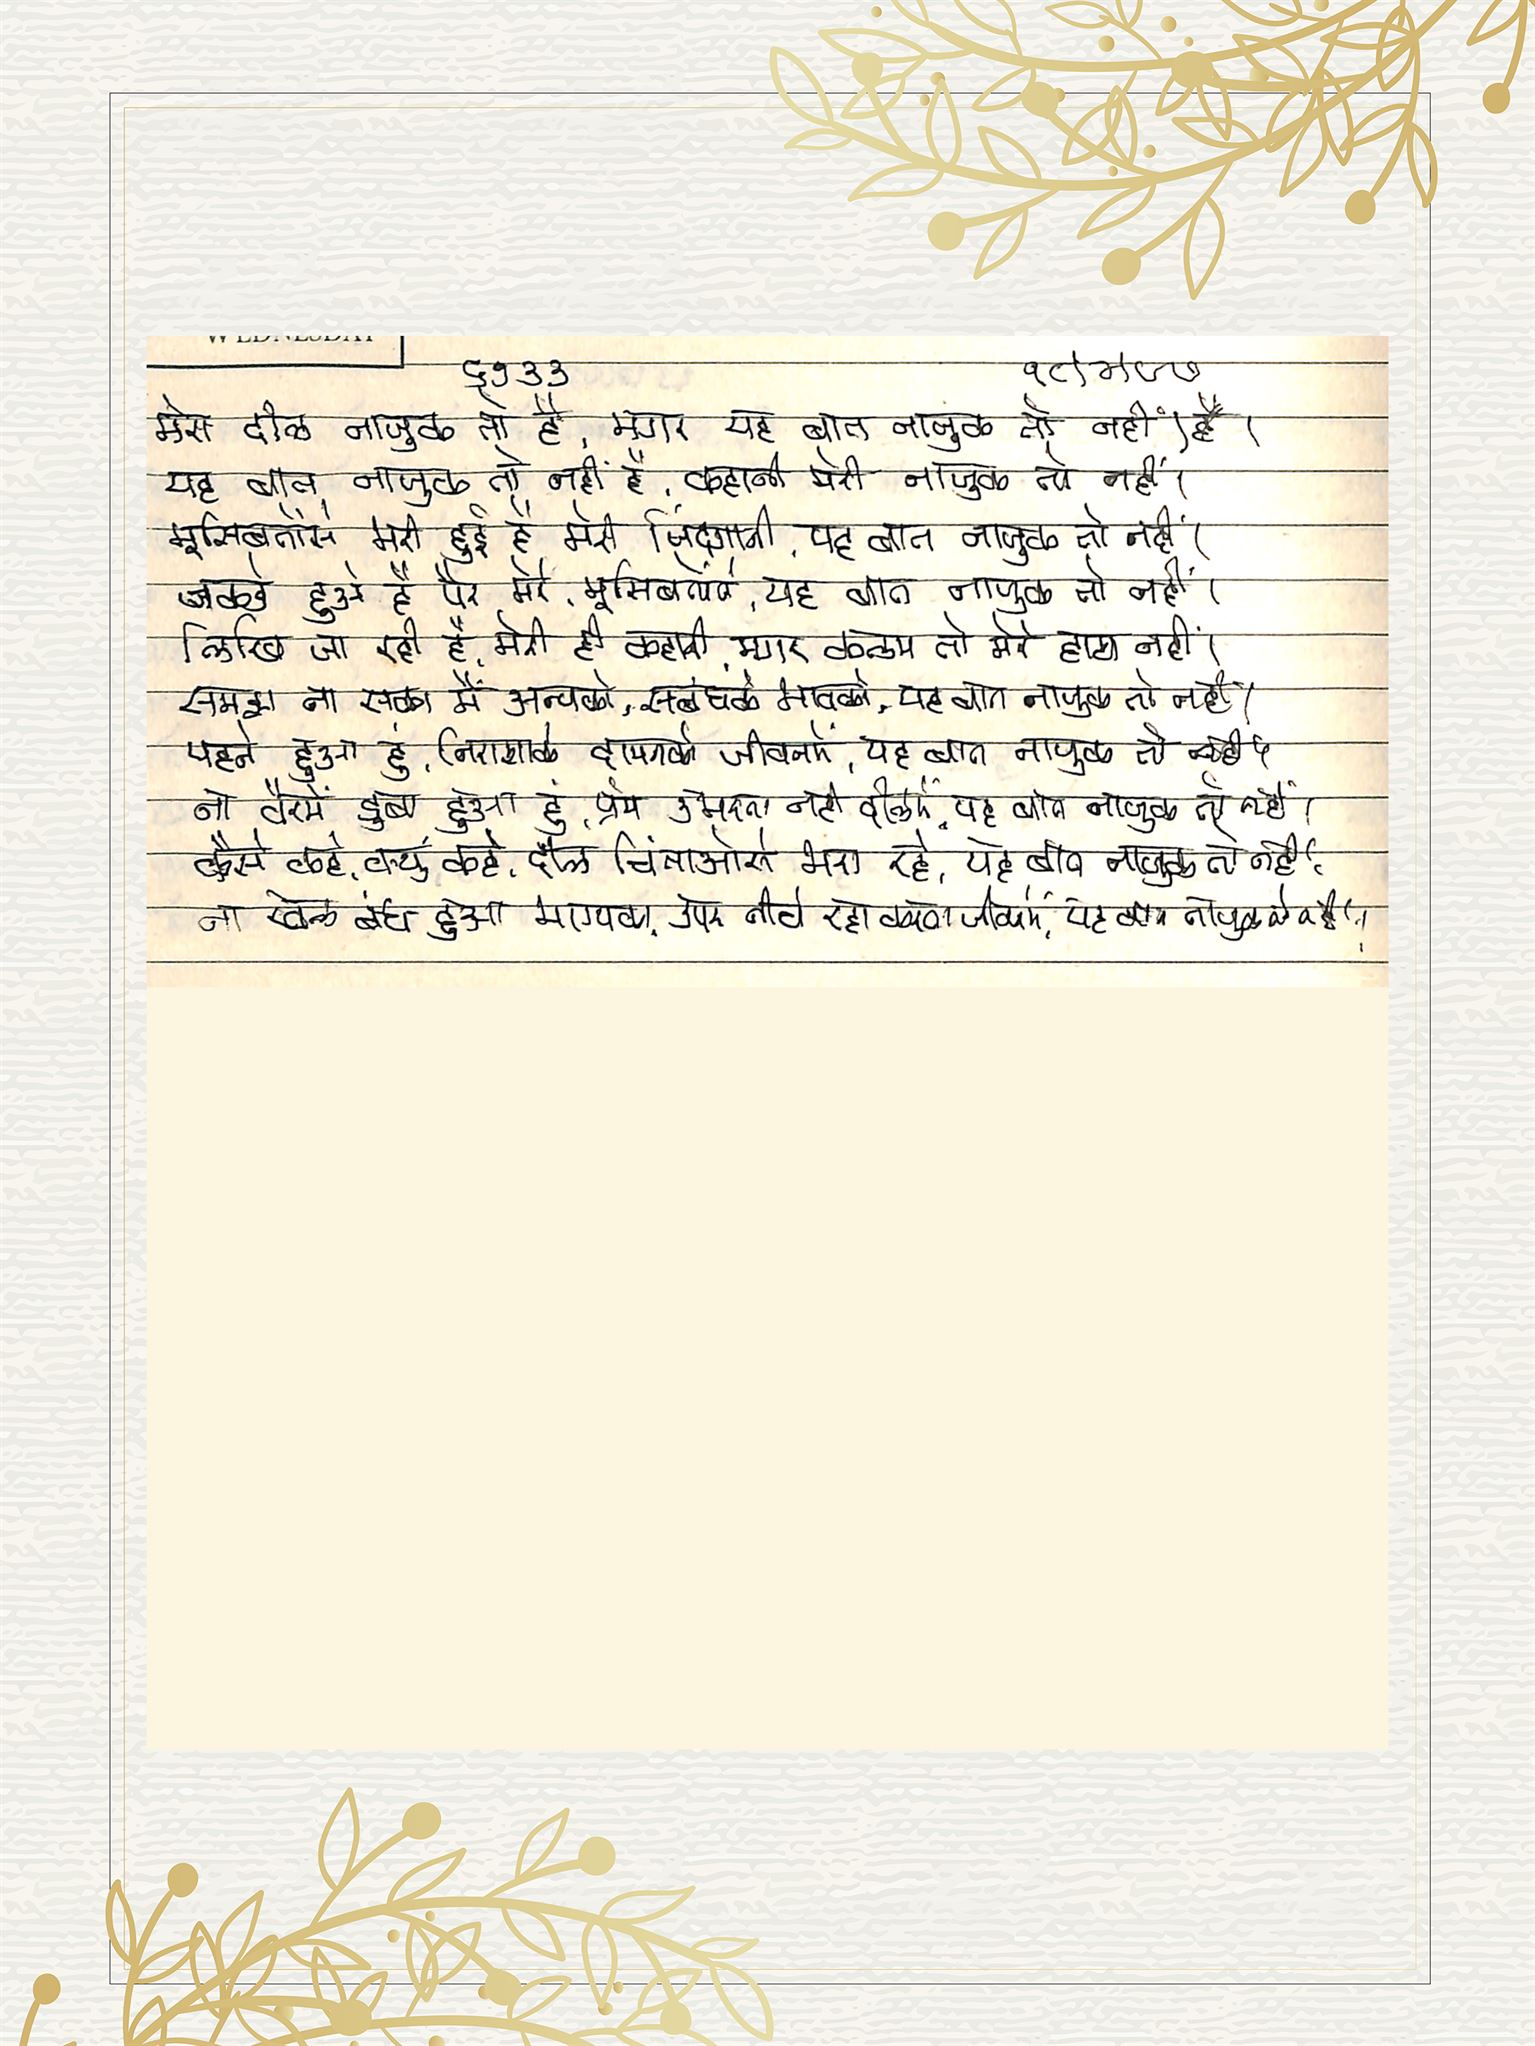 WEDNESDAY
६७३३
मेरा दील नाजुक तो है, मगर यह बात नाजुक तो नहीं है।
यह बात नाजुक तो नहीं है, कहानी मेरी नाजुक तो नहीं।
मूसिबतोंसे भरी हुई है मेरी जिंदगानी, यह बात नाजुक तो नहीं।
जकडे हुओ है पैर मेरे, मूसिबतोंने, यह बात नाजुक तो नहीं।
लिखि जा रही है, मेरी ही कहानी, मगर कलम तो मेरे हाथ नहीं।
समझ ना सका मैं अन्यको, सबंधके भावको, यह बात नाजुक तो नहीं।
पहने हुआ हुं, निराशाके दामनको जीवनमें, यह बात नाजुक तो नहीं
ना वैरमें डुबा हुआ हुं, प्रेम उभरता नही दीलमें, यह बात नाजुक तो नहीं।
कैसे कहे, क्युं कहे, दील चिंताओसे भरा रहे, यह बात नाजुक तो नहीं
ना खेल बंध हुआ भाग्यका, उपर नीचे रहा करता जीवनमें, यह बात नाजुक तो नहीं।